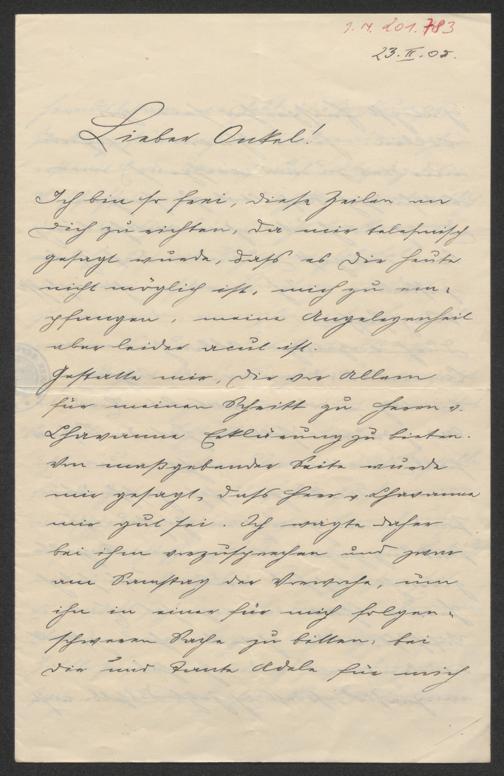 J. N. 201.783
23. II. 05.
Lieber Onkel!
Ich bin so frei, diese Zeilen an
Dich zu richten, da mir telefonisch
gesagt wurde, dass es Dir heute
nicht möglich ist, mich zu em-
pfangen, meine Angelegenheit
aber leider acut ist.
Gestatte mir, Dir vor Allem
für meinen Schritt zu Herrn v.
Chavanne Erklärung zu bieten.
Von maßgebender Seite wurde
mir gesagt, dass Herr v. Chavanne
mir gut sei. Ich wagte daher
bei ihm vorzusprechen und zwar
am Samstag der Vorwoche, um
ihn in einer für mich folgen-
schweren Sache zu bitten, bei
Dir und Tante Adele für mich